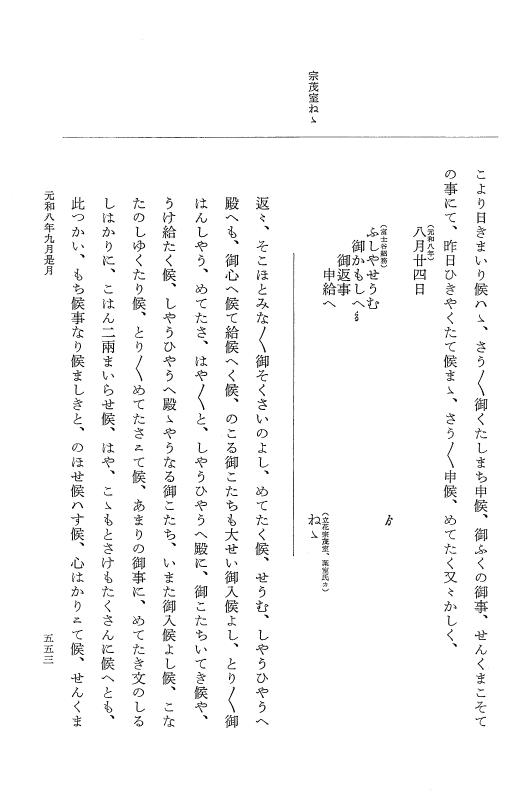 宗茂室ねゝ
こより日きまいり候ハゝ、さう〳〵御くたしまち申候、御ふくの御事、せんくまこそて
の事にて、昨日ひきやくたて候まゝ、さう〳〵申候、めてたく又〻かしく、
(元和八年)
八月廿四日
(富士谷紹務)
ふしやせうむ
御かもしへ
御返事
申給へ
(立花宗茂室、葉室氏カ)
ねゝ
返〻、そこほとみな〳〵御そくさいのよし、めてたく候、せうむ、しやうひやうへ
殿へも、御心へ候て給候へく候、のこる御こたちも大せい御入候よし、とり〳〵御
はんしやう、めてたさ、はや〳〵と、しやうひやうへ殿に、御こたちいてき候や、
うけ給たく候、しやうひやうへ殿ゝやうなる御こたち、いまた御入候よし候、こな
たのしゆくたり候、とり〳〵めてたさニて候、あまりの御事に、めてたき文のしる
しはかりに、こはん二兩まいらせ候、はや、こゝもとさけもたくさんに候へとも、
此つかい、もち候事なり候ましきと、のほせ候ハす候、心はかりニて候、せんくま
元和八年九月是月
五五三